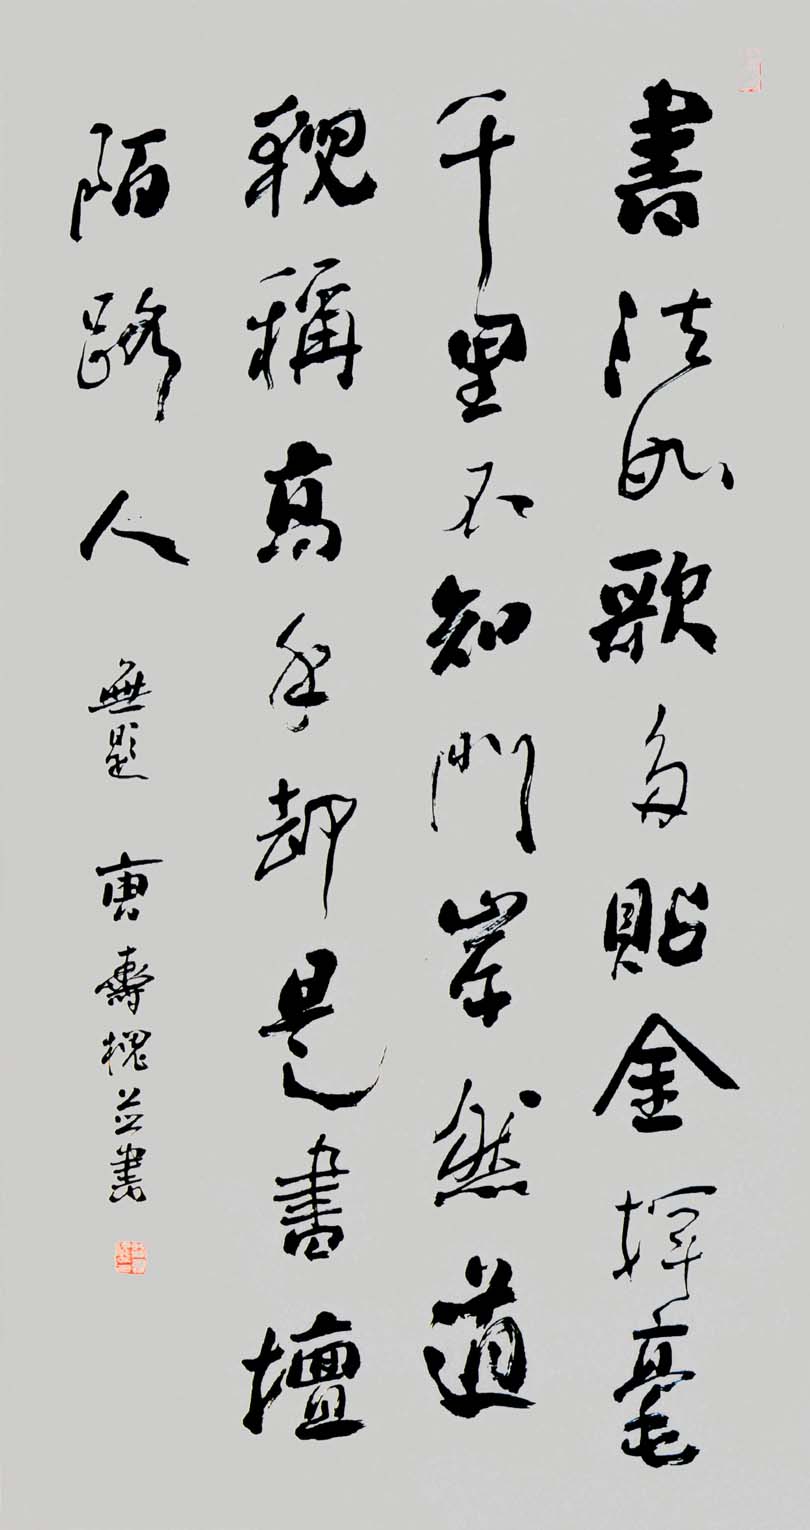 書法如歌多貼金揮毫
千里不知門岸然道
貌稱高手却是書壇
陌路人
無題 唐壽槐並書